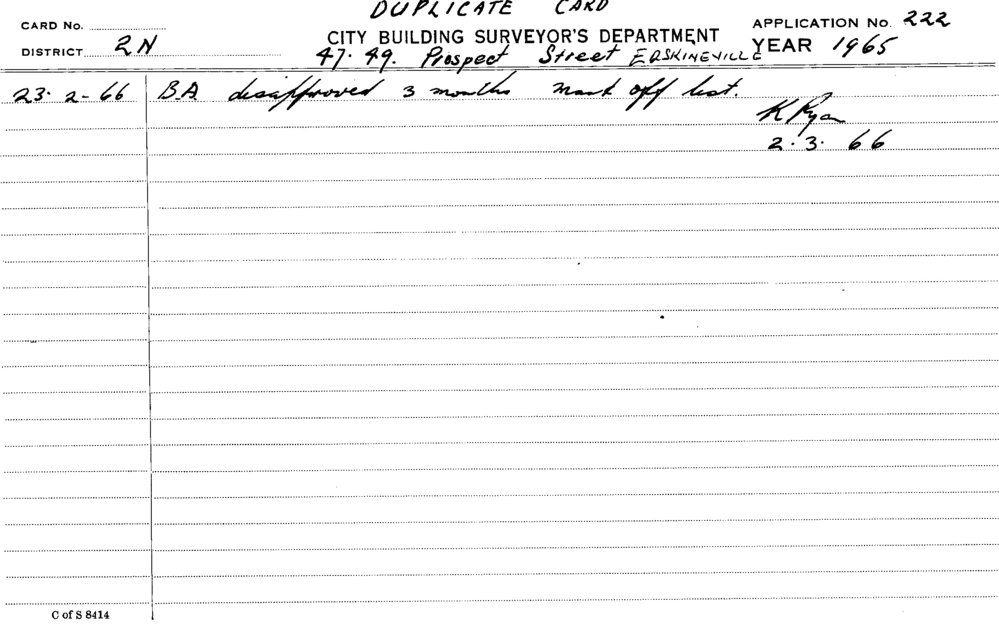 DUPLICATE CARD
CARD No.
CITY BUILDING SURVEYOR'S DEPARTMENT
APPLICATION No. 222
DISTRICT 2N
47. 49. Prospect Street ERSKINEVILLE
YEAR 1965
23. 2-66 B.A disapproved 3 months mark off list.
K Ryan
2.3. 66
C of S 8414